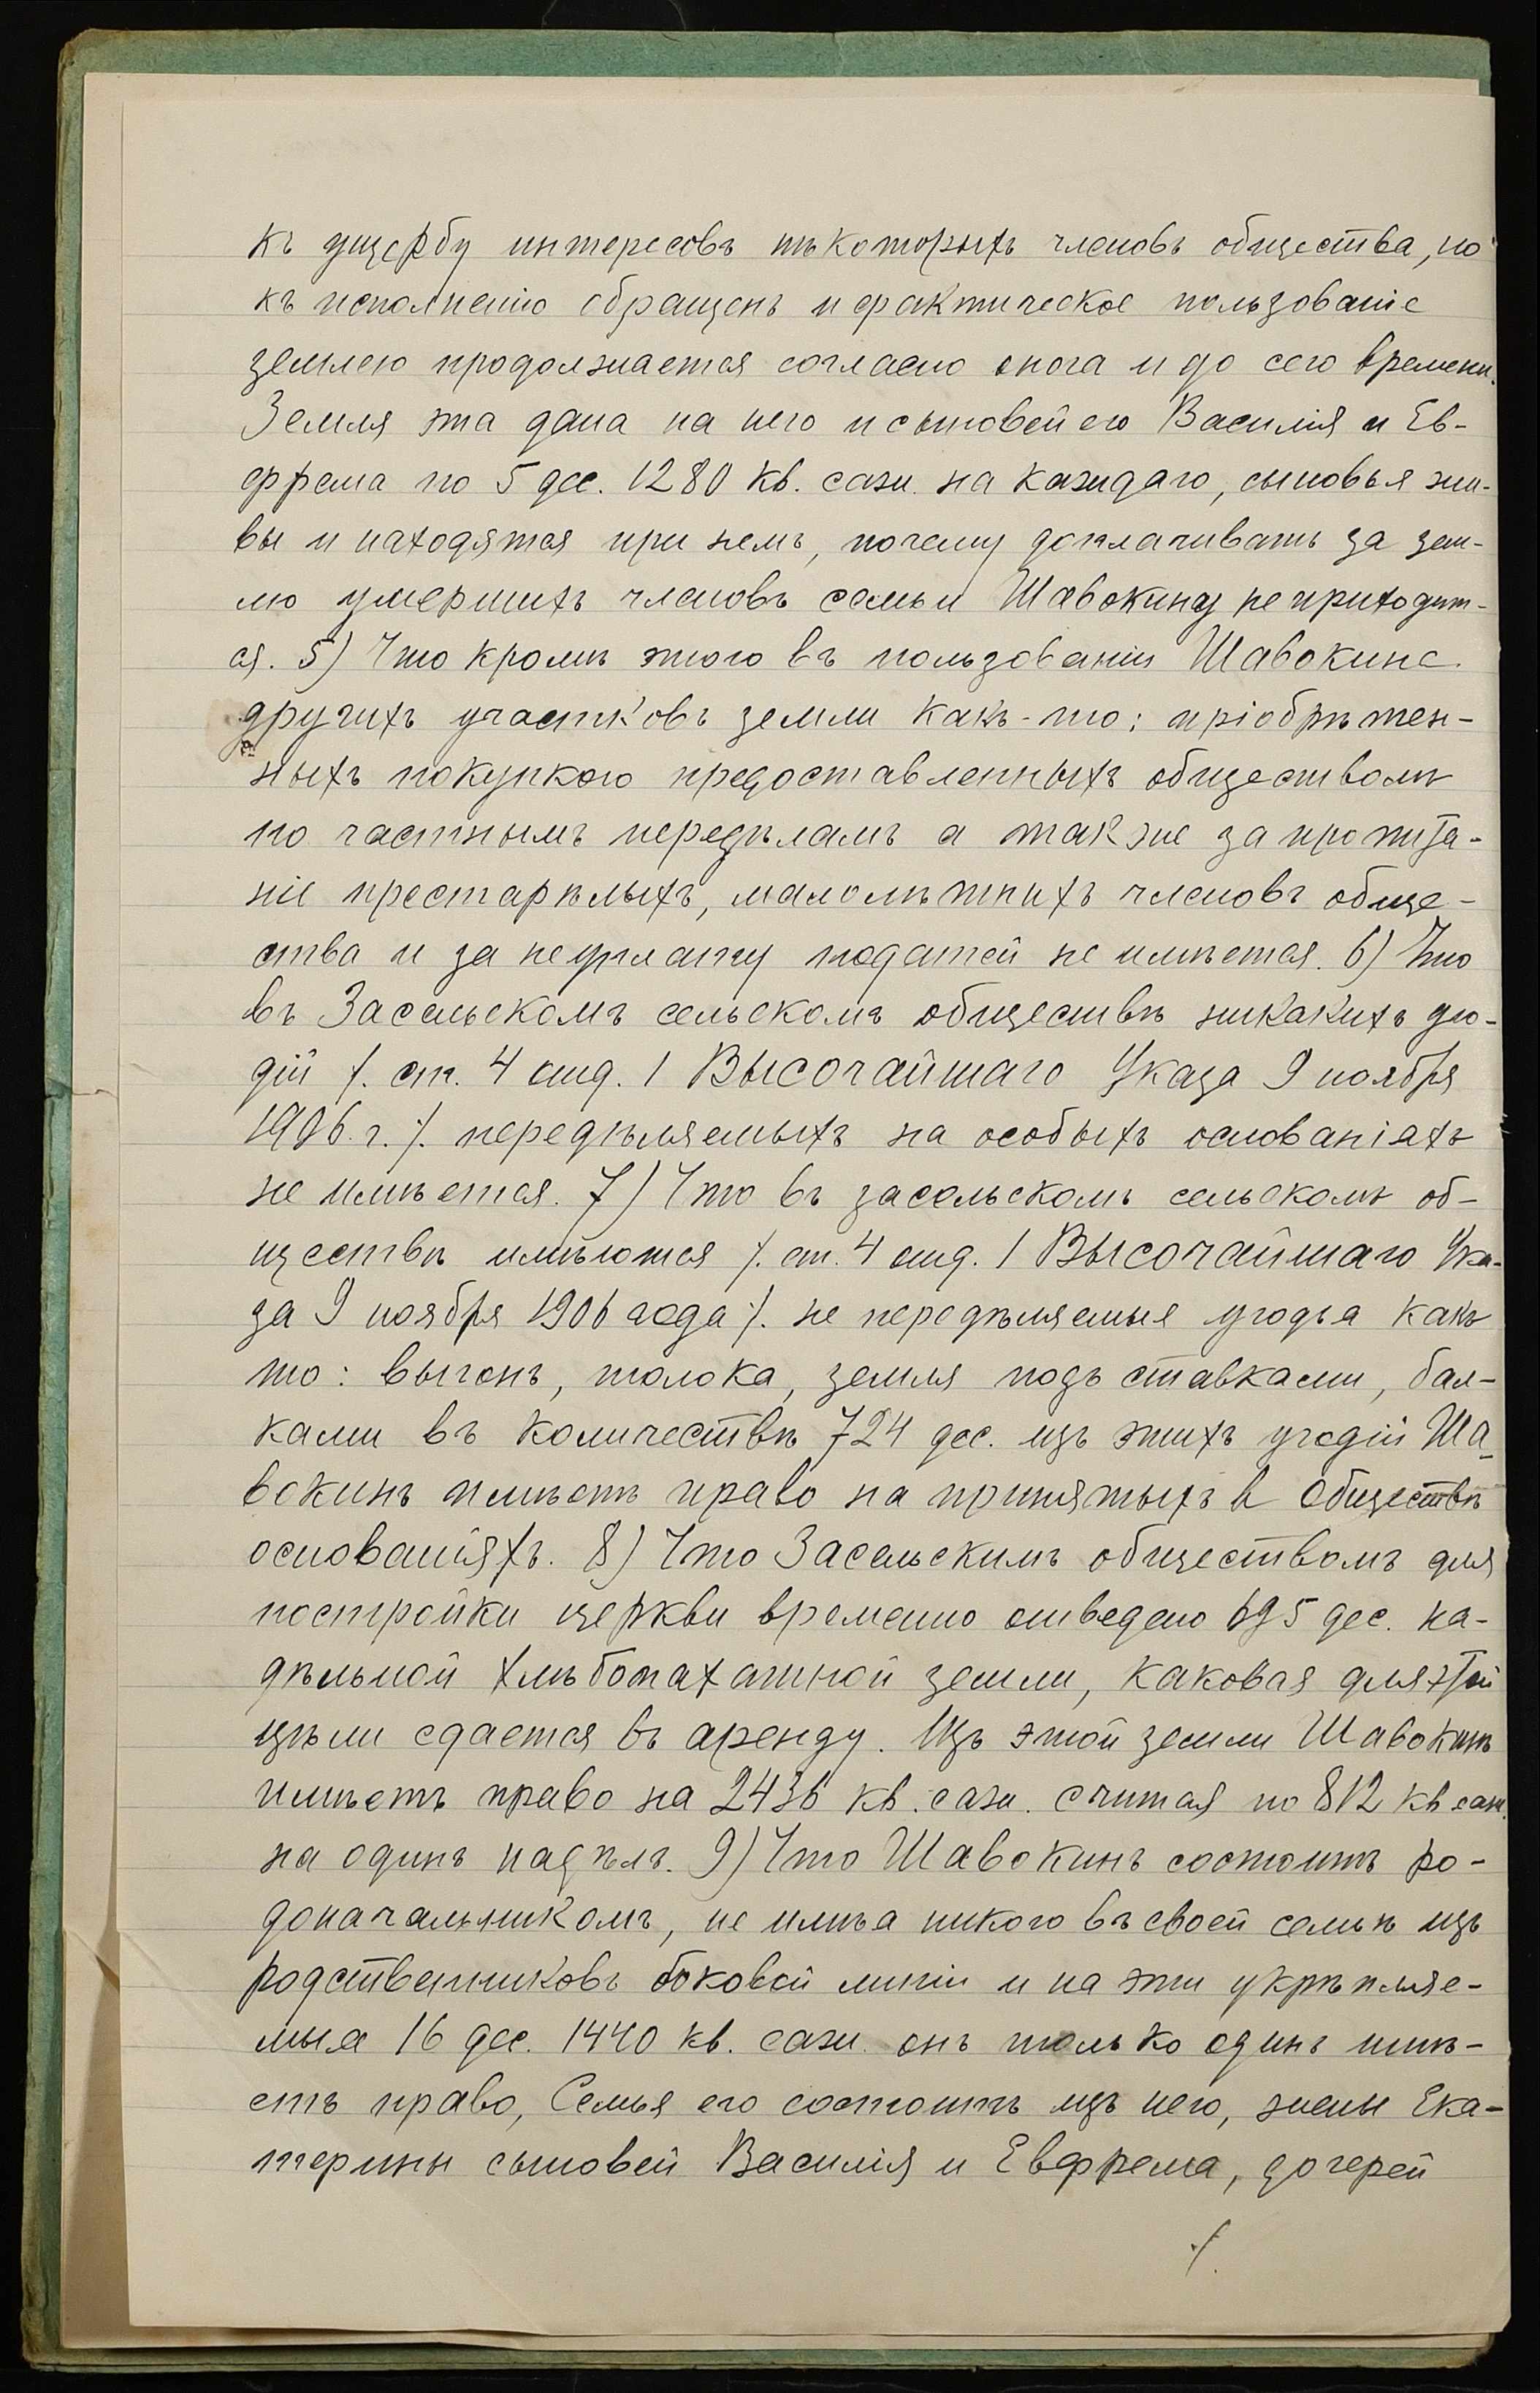 къ ущербу интересовъ нѣкоторыхъ членовъ общества, но
къ исполненію обращенъ и фактическое пользованіе
землею продолжается согласно онога и до сего времени.
Земля эта дана на него и сыновей его Василія и Ев-
фрема по 5 дес. 1280 кв. саж. на каждаго, сыновья жи-
вы и находятся при немъ, почему доплачивать за зем-
лю умершихъ членовъ семьи Шавокину не приходит-
ся. 5) Что кромѣ этого въ пользованіи Шавокина
другихъ участковъ земли какъ-то: пріобрѣтен-
ныхъ покупкою предоставленныхъ обществомъ
по частнымъ передѣламъ а также за пропита-
ніе престарѣлыхъ, малолѣтнихъ членовъ обще-
ства и за неуплату податей не имѣется. 6) Что
въ Засельскомъ сельскомъ обществѣ никакихъ уго-
дій /. ст. 4 отд. 1 Высочайшаго Указа 9 ноября
1906 г. /. передѣляемыхъ на особыхъ основаніяхъ
не имѣется. 7) Что въ засельскомъ сельскомъ об-
ществѣ имѣются /. ст. 4 отд. 1 Высочайшаго Ука-
за 9 ноября 1906 года /. не передѣляемыя угодья какъ
то: выгонъ, толока, земля подъ ставками, бал-
ками въ количествѣ 724 дес. изъ этихъ угодій Ша-
вокинъ имѣетъ право на принятыхъ в обществѣ
основаніяхъ. 8) Что Засельскимъ обществомъ для
постройки церкви временно отведено 695 дес. на-
дѣльной хлѣбопахатной земли, каковая для этой
цѣли сдается въ аренду. Изъ этой земли Шавокинъ
имѣетъ право на 2436 кв. саж. считая по 812 кв саж.
на одинъ надѣлъ. 9) Что Шавокинъ состоитъ ро-
доначальникомъ, не имѣя никого въ своей семьѣ изъ
родственниковъ боковой линіи и на эти укрѣпляе-
мыя 16 дес. 1440 кв. саж. онъ только одинъ имѣ-
етъ право, Семья его состоитъ изъ него, жены Ека-
терины сыновей Василія и Евфрема, дочерей
./.